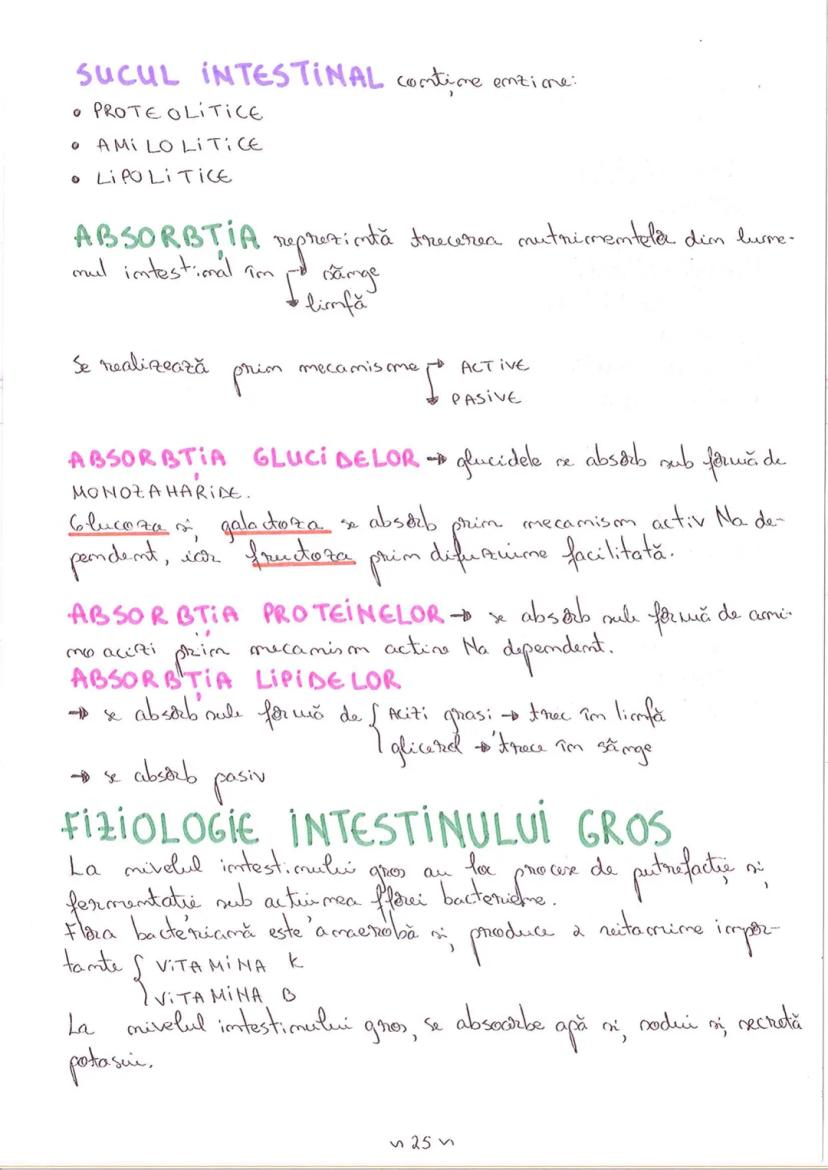 SUCUL INTESTINAL conține enzime:
• PROTEOLITICE
• AMILOLITICE
• LIPOLITICE
ABSORBȚIA reprezintă trecerea nutrimentela din lume-
nul intestinal în → sânge
↓ limfă
Se realizează prin mecanisme → ACTIVE
↓ PASIVE
ABSORBȚIA GLUCIDELOR → glucidele se absorb sub formă de
MONOZAHARIDE.
Glucoza și galactoza se absorb prin mecanism activ Na de-
pendent, iar fructoza prin difuziune facilitată.
ABSORBȚIA PROTEINELOR → se absorb sub formă de ami-
no acizi prin mecanism activ Na dependent.
ABSORBȚIA LIPIDELOR
→ se absorb sub formă de { Acizi grași → trec în limfă
glicerol → trece în sânge
→ se absorb pasiv
FIZIOLOGIE INTESTINULUI GROS
La nivelul intestinului gros au loc procese de putrefacție și
fermentație sub acțiunea florei bacteriene.
Flora bacteriană este anaerobă și produce 2 vitamine impor-
tante { VITAMINA K
VITAMINA B
La nivelul intestinului gros, se absoarbe apă și sodiu și secretă
potasiu.
~ 25 ~